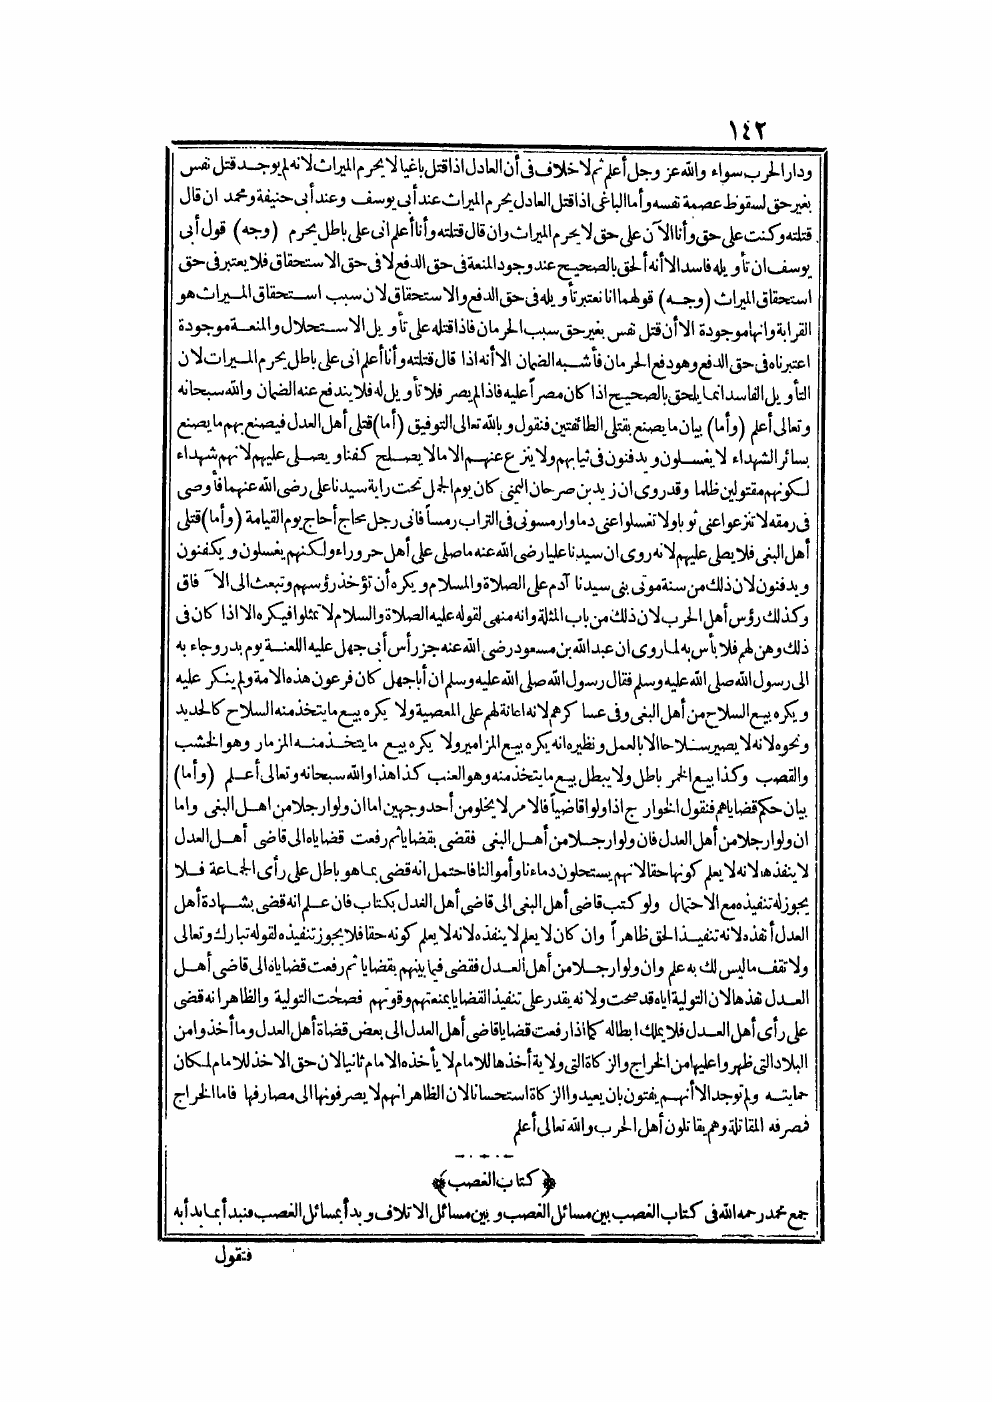 ١٤٢
ودار الحرب سواء والله عز وجل أعلم ثم لا خلاف فى أن العادل اذا قتل باغيا لا يحرم الميراث لانه لم يوجد قتل نفس
بغير حق لسقوط عصمة نفسه وأما الباغى اذا قتل العادل يحرم الميراث عند أبى يوسف وعند أبى حنيفة ومحمد ان قال
قتلته وكنت على حق وأنا الآن على حق لا يحرم الميراث وان قال قتلته وأنا أعلم انى على باطل يحرم (وجه) قول أبى
يوسف ان تأويله فاسد الا أنه ألحق بالصحيح عند وجود المنعة فى حق الدفع لا فى حق الاستحقاق فلا يعتبر فى حق
استحقاق الميراث (وجه) قولهما انا نعتبر تأويله فى حق الدفع والاستحقاق لان سبب استحقاق الميراث هو
القرابة وانها موجودة الا أن قتل نفس بغير حق سبب الحرمان فاذا قتله على تأويل الاستحلال والمنعة موجودة
اعتبرناه فى حق الدفع وهو دفع الحرمان فأشبه الضمان الا أنه اذا قال قتلته وأنا أعلم انى على باطل يحرم الميراث لان
التأويل الفاسد انما يلحق بالصحيح اذا كان مصراً عليه فاذا لم يصر فلا تأويل له فلا يندفع عنه الضمان والله سبحانه
وتعالى أعلم (وأما) بيان ما يصنع بقتلى الطائفتين فنقول وبالله تعالى التوفيق (أما) قتلى أهل العدل فيصنع بهم ما يصنع
بسائر الشهداء لا يغسلون ويدفنون فى ثيابهم ولا ينزع عنهم الا ما لا يصلح كفنا ويصلى عليهم لانهم شهداء
لكونهم مقتولين ظلما وقد روى ان زيد بن صرحان اليمنى كان يوم الجمل تحت راية سيدنا على رضى الله عنهما فأوصى
فى رمقه لا تنزعوا عنى ثوبا ولا تغسلوا عنى دما وارمسونى فى التراب رمساً فانى رجل محاج أحاج يوم القيامة (وأما) قتلى
أهل البغى فلا يصلى عليهم لانه روى ان سيدنا عليا رضى الله عنه ما صلى على أهل حروراء ولكنهم يغسلون ويكفنون
ويدفنون لان ذلك من سنة موتى بنى سيدنا آدم على الصلاة والسلام ويكره أن تؤخذ رؤسهم وتبعث الى الآفاق
وكذلك رؤس أهل الحرب لان ذلك من باب المثلة وانه منهى لقوله عليه الصلاة والسلام لا تمثلوا فيكره الا اذا كان فى
ذلك وهن لهم فلا بأس به لما روى ان عبد الله بن مسعود رضى الله عنه جز رأس أبى جهل عليه اللعنة يوم بدر وجاء به
الى رسول الله صلى الله عليه وسلم فقال رسول الله صلى الله عليه وسلم ان أبا جهل كان فرعون هذه الامة ولم ينكر عليه
ويكره بيع السلاح من أهل البغى وفى عساكرهم لانه اعانة لهم على المعصية ولا يكره بيع ما يتخذ منه السلاح كالحديد
ونحوه لانه لا يصير سلاحا الا بالعمل ونظيره انه يكره بيع المزامير ولا يكره بيع ما يتخذ منه المزمار وهو الخشب
والقصب وكذا بيع الخمر باطل ولا يبطل بيع ما يتخذ منه وهو العنب كذا هذا والله سبحانه وتعالى أعلم (وأما)
بيان حكم قضاياهم فنقول الخوارج اذا ولوا قاضياً فالامر لا يخلو من أحد وجهين اما ان ولوا رجلا من اهل البغى واما
ان ولوا رجلا من أهل العدل فان ولوا رجلا من أهل البغى فقضى بقضايا ثم رفعت قضاياه الى قاضى أهل العدل
لا ينفذها لانه لا يعلم كونها حقا لانهم يستحلون دماءنا وأموالنا فاحتمل انه قضى بما هو باطل على رأى الجماعة فلا
يجوز له تنفيذه مع الاحتمال ولو كتب قاضى أهل البغى الى قاضى أهل العدل بكتاب فان علم انه قضى بشهادة أهل
العدل أنفذه لانه تنفيذ الحق ظاهراً وان كان لا يعلم لا ينفذه لانه لا يعلم كونه حقا فلا يجوز تنفيذه لقوله تبارك وتعالى
ولا تقف ما ليس لك به علم وان ولوا رجلا من أهل العدل فقضى فيما بينهم بقضايا ثم رفعت قضاياه الى قاضى أهل
العدل نفذها لان التولية اياه قد صحت ولانه يقدر على تنفيذ القضايا بمنعتهم وقوتهم فصحت التولية والظاهر انه قضى
على رأى أهل العدل فلا يملك ابطاله كما اذا رفعت قضايا قاضى أهل العدل الى بعض قضاة أهل العدل وما أخذوا من
البلاد التى ظهروا عليها من الخراج والزكاة التى ولاية أخذها للامام لا يأخذه الامام ثانيا لان حق الاخذ للامام لمكان
حمايته ولم توجد الا أنهم يفتون بان يعيدوا الزكاة استحسانا لان الظاهر انهم لا يصرفونها الى مصارفها فاما الخراج
فمصرفه المقاتلة وهم يقاتلون أهل الحرب والله تعالى أعلم
﴿كتاب الغصب﴾
جمع محمد رحمه الله فى كتاب الغصب بين مسائل الغصب و بين مسائل الاتلاف وبدأ بمسائل الغصب فنبدأ بما بدأ به
فنقول